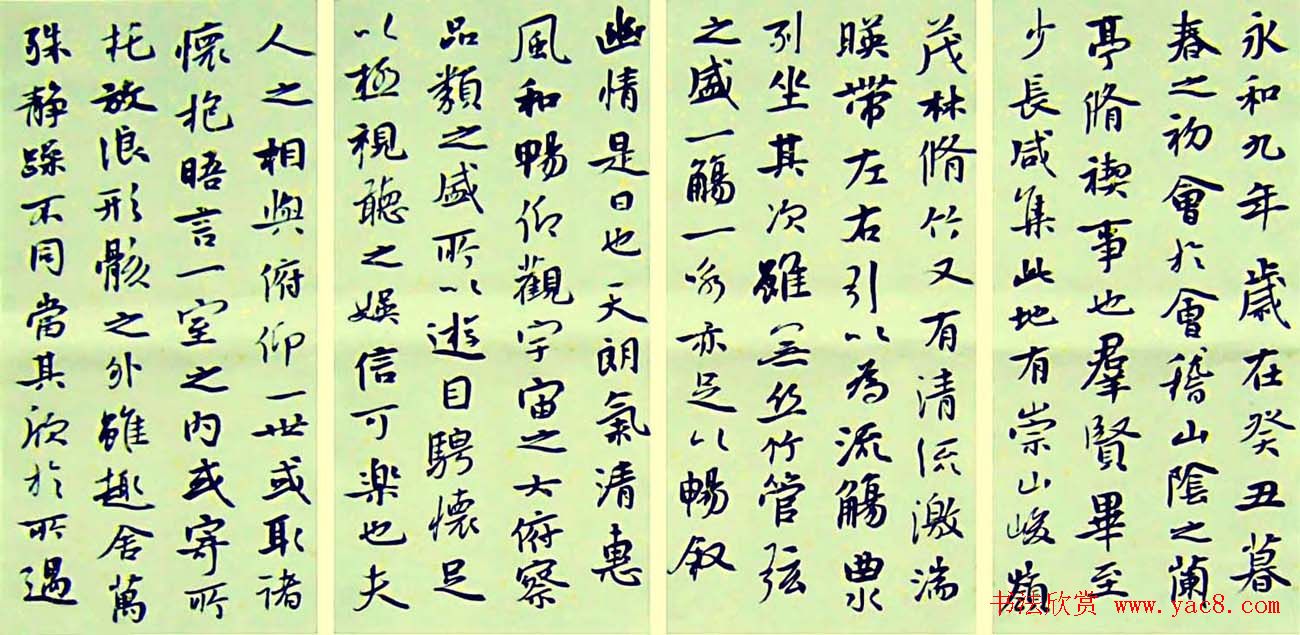 永和九年歲在癸丑暮
春之初會於會稽山陰之蘭
亭脩禊事也羣賢畢至
少長咸集此地有崇山峻嶺
茂林脩竹又有清流激湍
暎帶左右引以為流觴曲水
列坐其次雖無絲竹管弦
之盛一觴一詠亦足以暢敘
幽情是日也天朗氣清惠
風和暢仰觀宇宙之大俯察
品類之盛所以遊目騁懷足
以極視聽之娛信可樂也夫
人之相與俯仰一世或取諸
懷抱晤言一室之內或寄所
托放浪形骸之外雖趣舍萬
殊静躁不同當其欣於所遇
书法欣赏 www.yac8.com